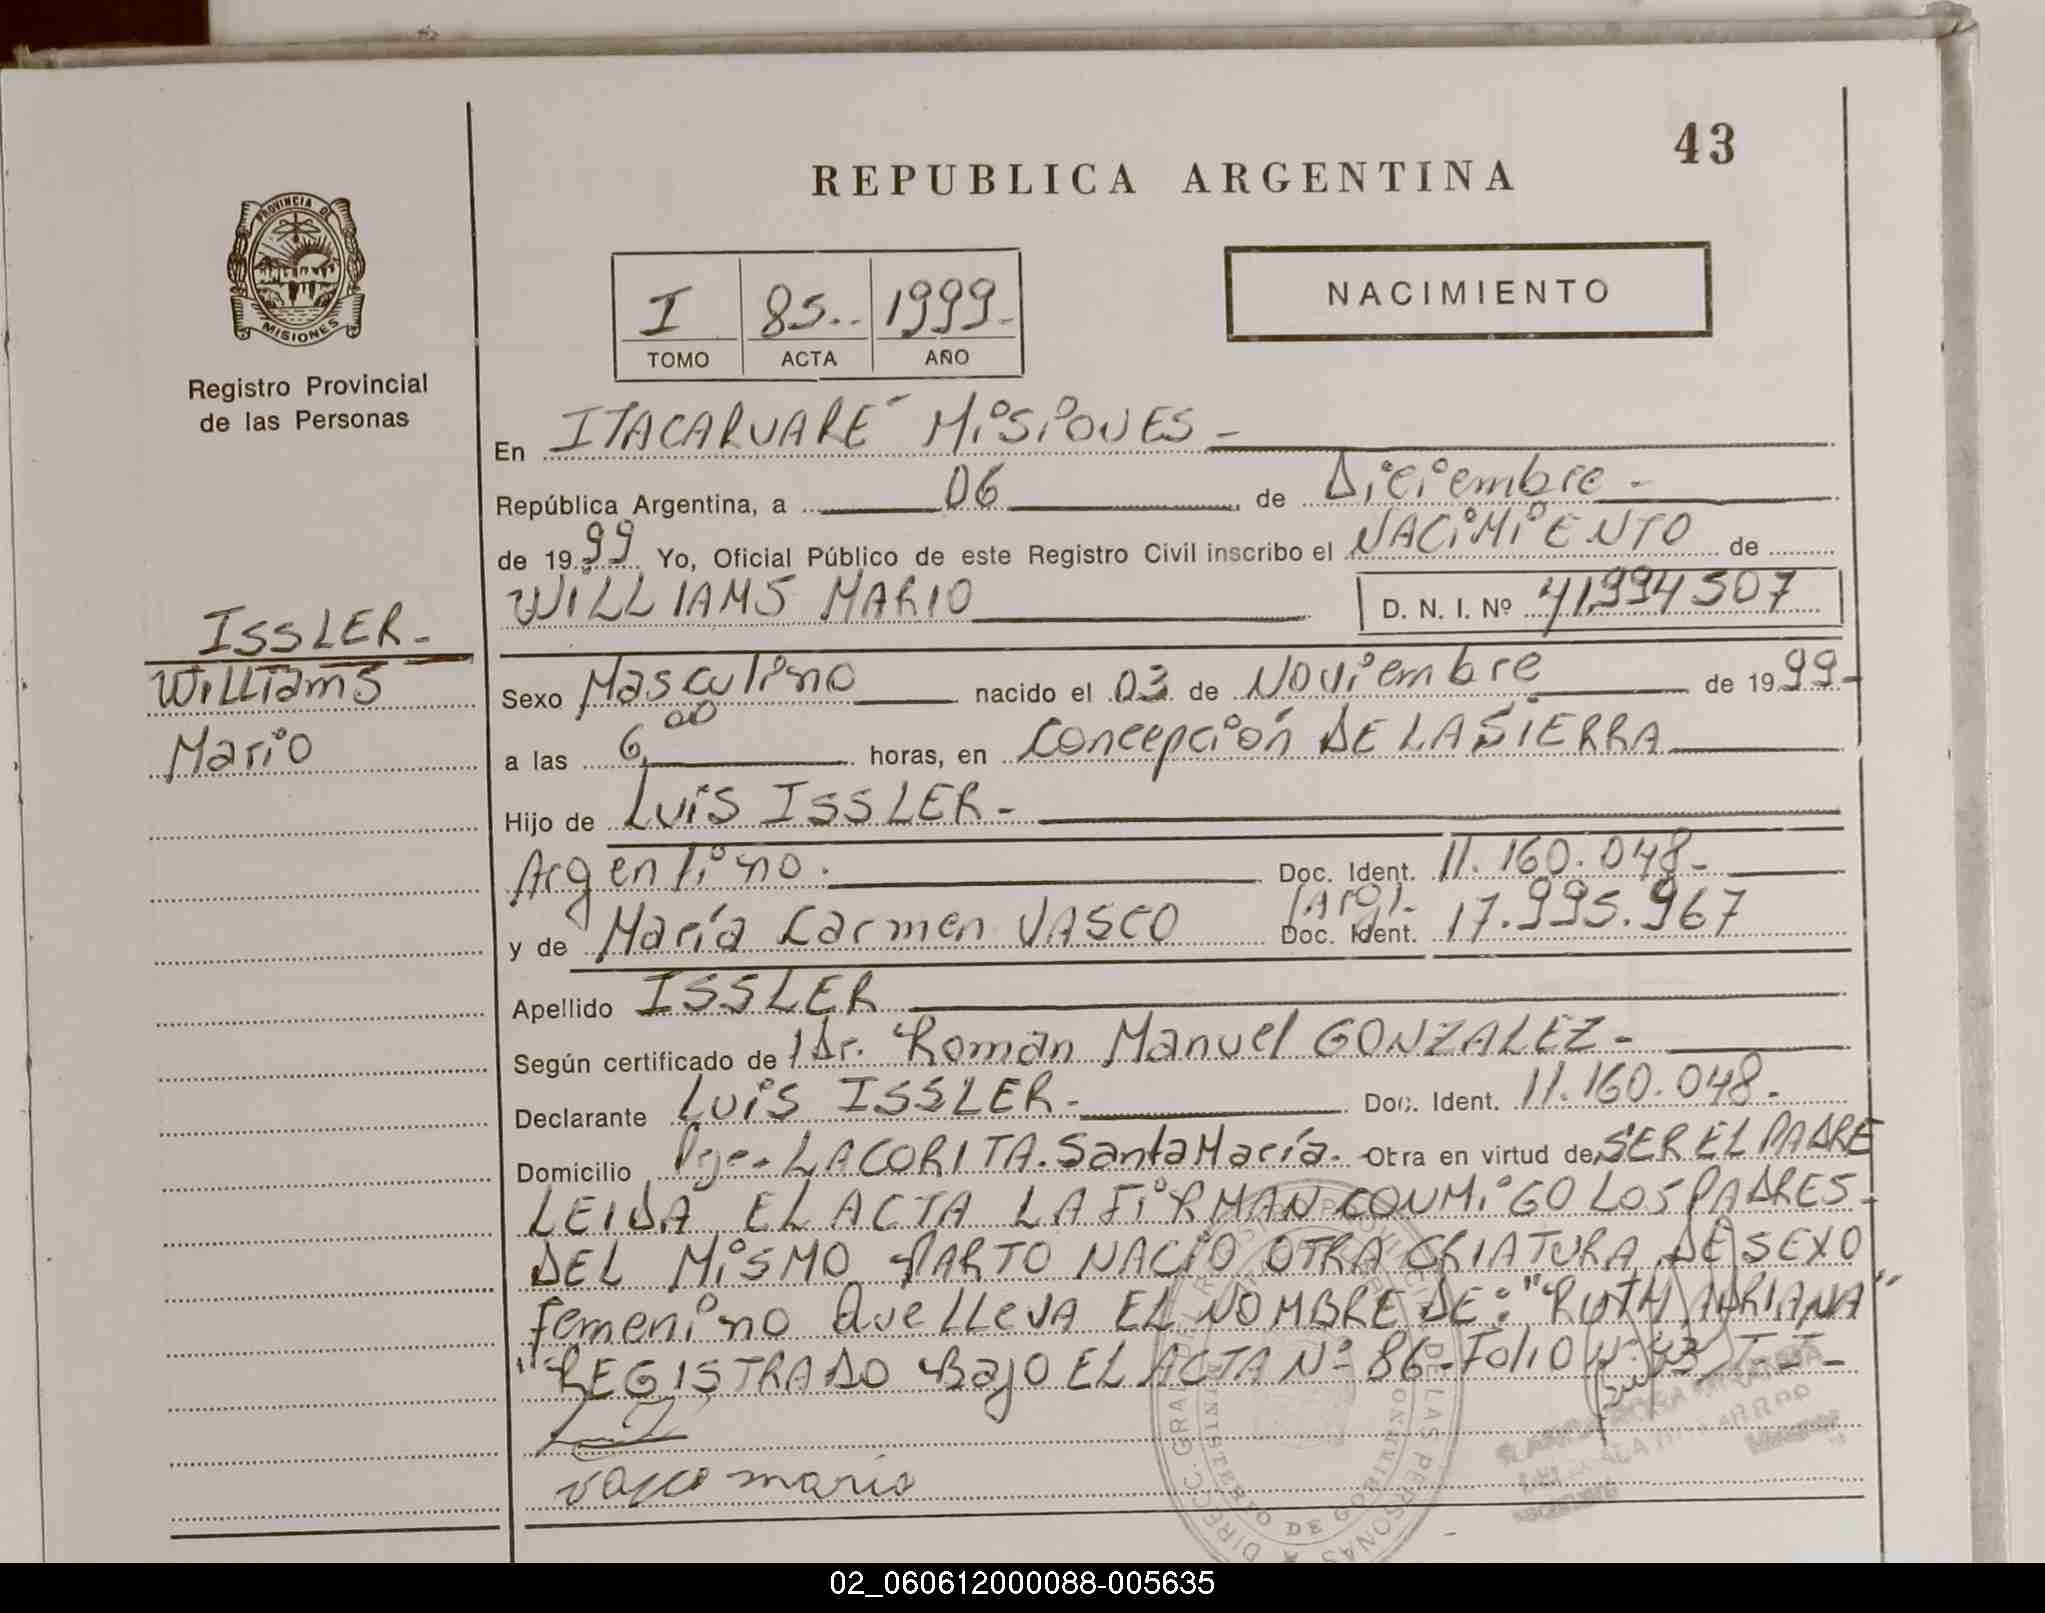 43
REPUBLICA ARGENTINA
PROVINCIA DE
MISIONES
Registro Provincial
de las Personas
I 85.. 1999-
TOMO ACTA AÑO
NACIMIENTO
En ITACARUARE MiSiONES -
República Argentina, a 06 de Diciembre -
de 1999 Yo, Oficial Público de este Registro Civil inscribo el NACiMiENTO de
WiLLIAMS MARIO D. N. I. Nº 41,994507
ISSLER-
Williams
Mario
Sexo Masculino nacido el 03 de Noviembre de 1999-
a las 6,00 horas, en Concepción DE LA SIERRA
Hijo de Luis ISSLER-
Argentino. Doc. Ident. 11.160.048-
(Arg).-
y de María Carmen VASCO Doc. Ident. 17.995.967
Apellido ISSLER
Según certificado de Dr. Roman Manuel GONZALEZ-
Declarante Luis ISSLER- Doc. Ident. 11.160.048-
Domicilio Pje- LACORITA. Santa María- Otra en virtud de SER EL PADRE
LEIDA EL ACTA LA FiRMAN CONMiGO LOS PADRES-
DEL MiSMO PARTO NACiO OTRA CRIATURA DE SEXO
femenino Que LLeVA EL NOMBRE DE: "RUTH ADRIANA"
"REGISTRADO Bajo EL ACTA Nº 86-Folio Nº 43 T-I-
vasco maria
DIRECC. GRAL. DEL REG. PROVINCIAL DE LAS PERSONAS
MINISTERIO DE GOBIERNO
02_060612000088-005635